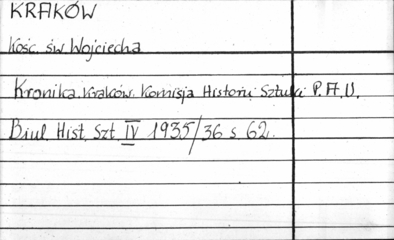 KRAKÓW
Kośc. św. Wojciecha
Kronika. Kraków. Komisja Historii Sztuki P.A.U.
Biul. Hist. Szt. IV 1935/36 s. 62.